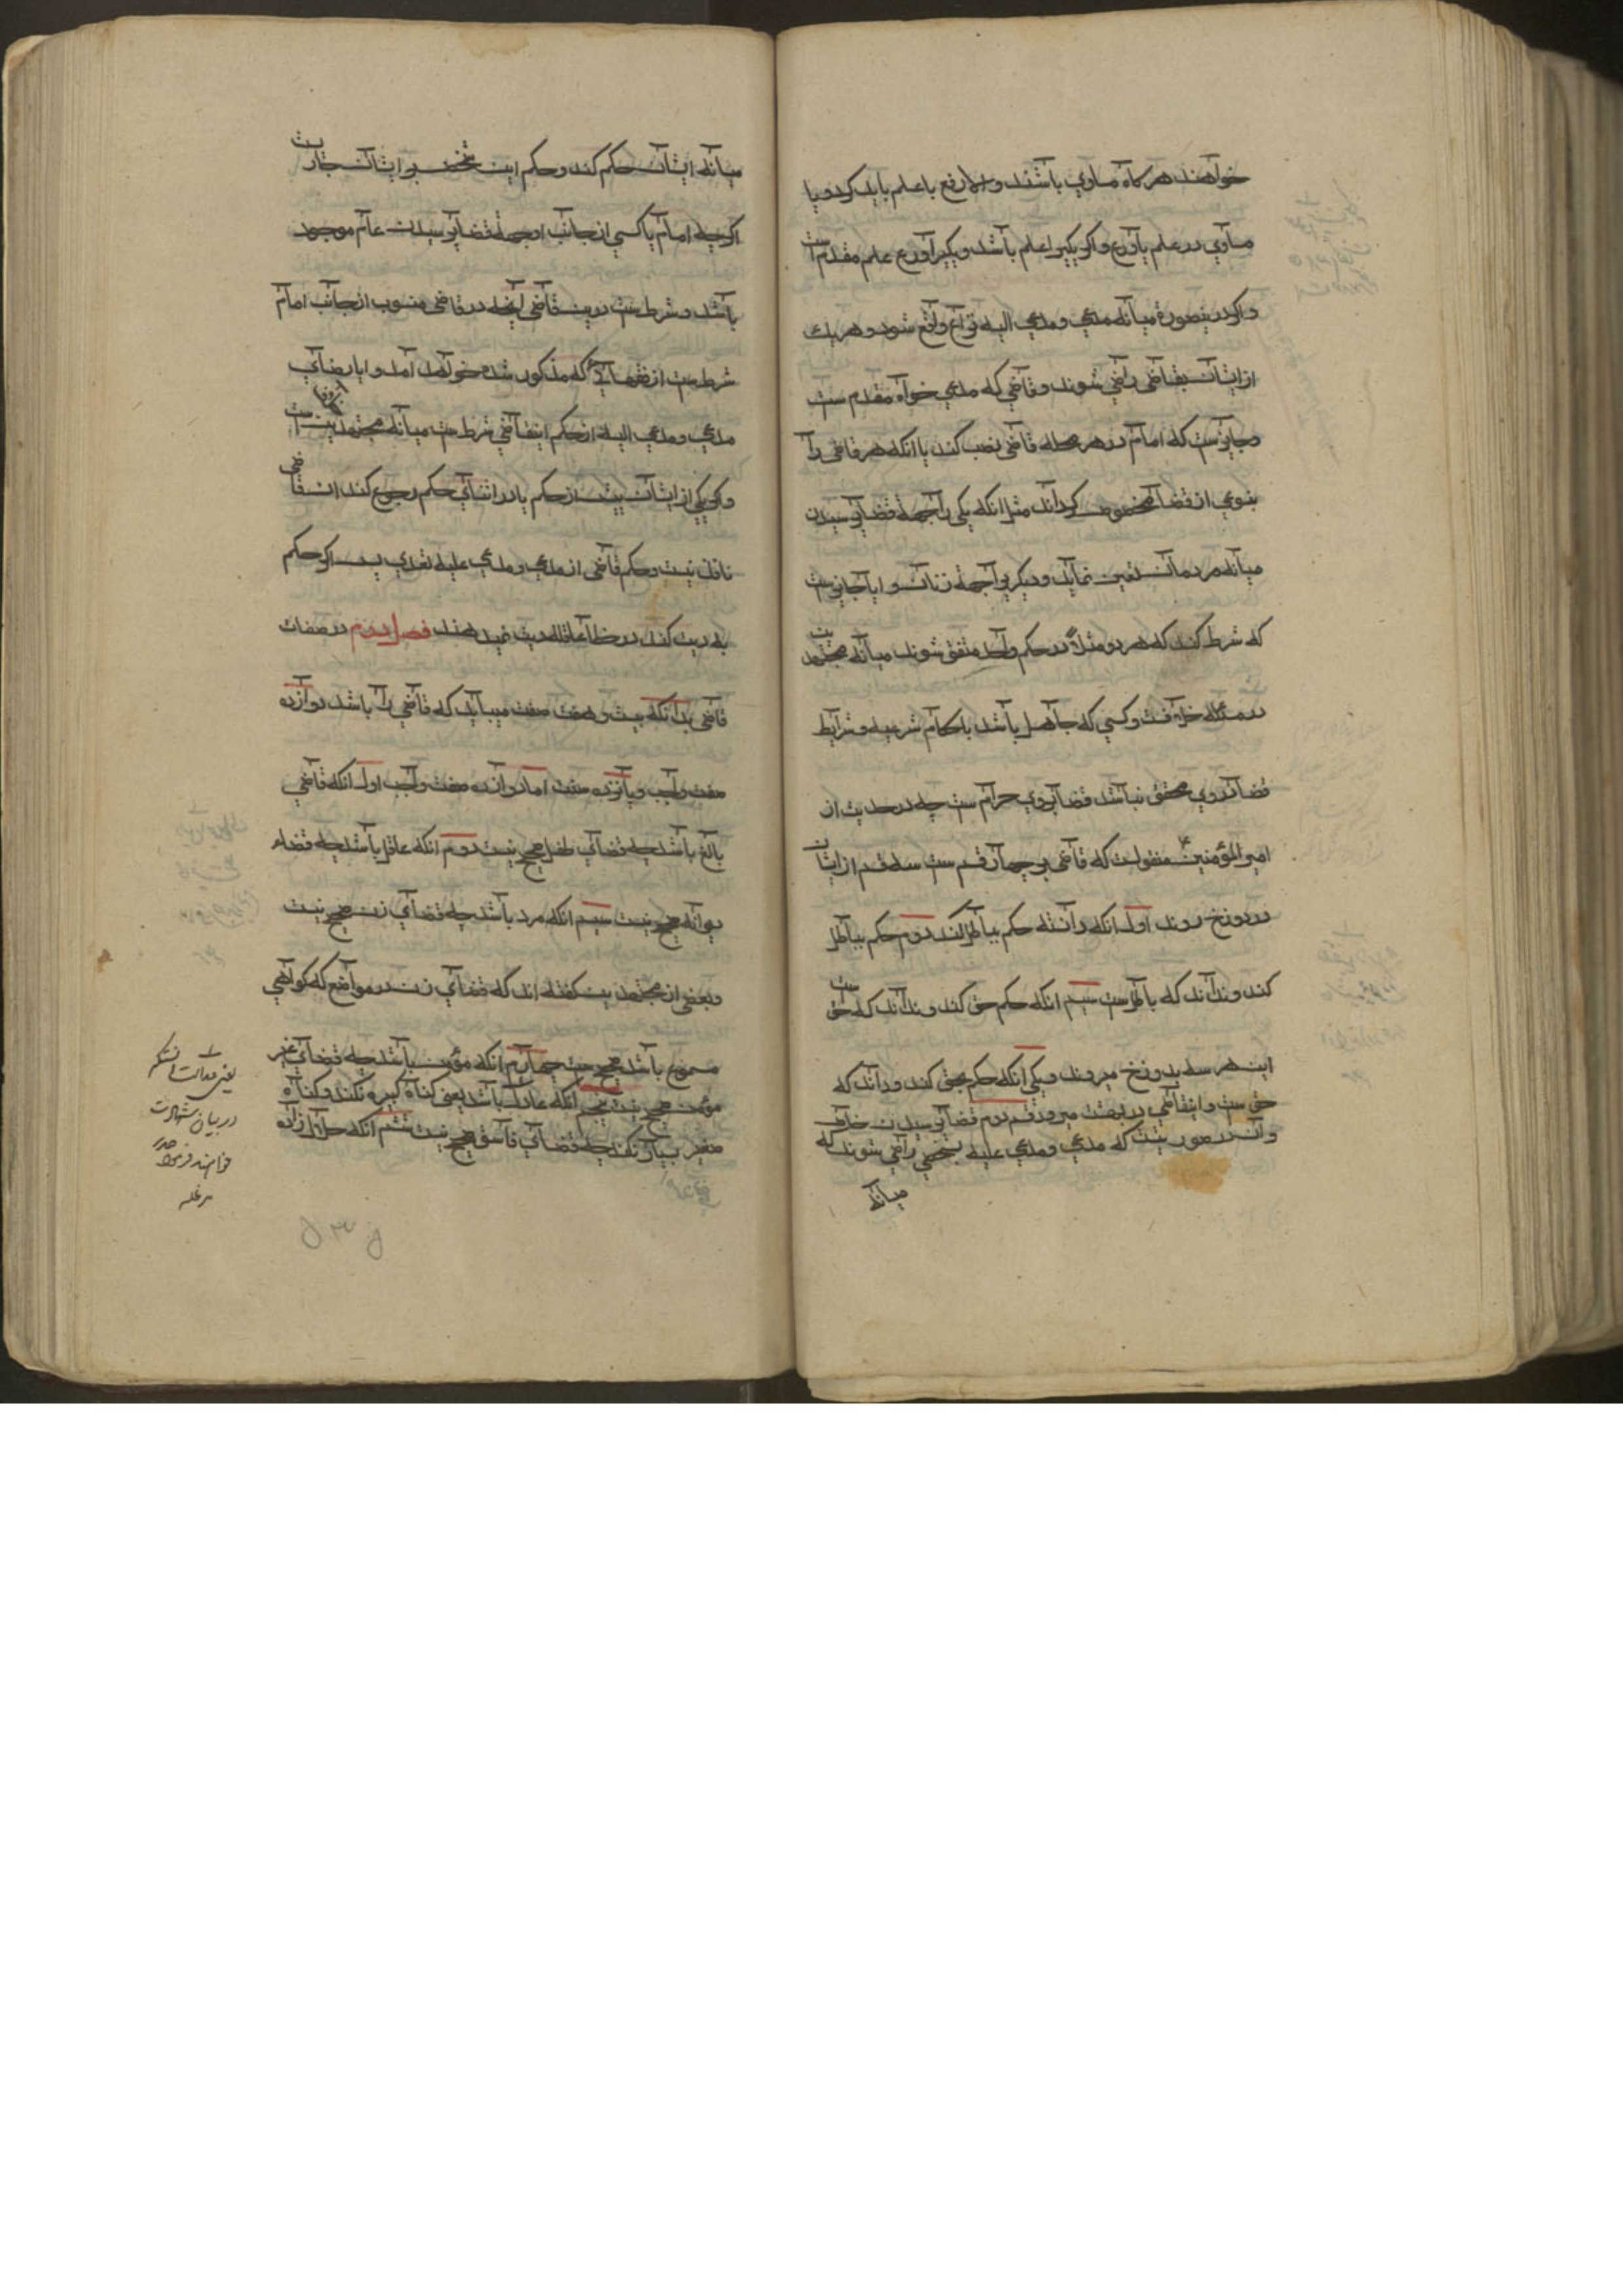 خواهند هر کاه مساوي باشند والا رفع باعلم باید کرد و با
مساوي در علم باورع و اکر یکیرا علم باشد و یکیرا ورع علم مقدم است
و اکر درینصورة میانه مدعي و مدعي الیه نزاع واقع شود و هر یك
از ایشان بقاضي راضي شوند و قاضي که مدعي خواه مقدم ست
و جایزست که امام در هر محله قاضي نصب کند یا انکه هر قاضي را
بنوعي از قضا مخصوص کرداند مثل انکه یکي را جهة قضا پرسیدن
میانه مردمان تعین نماید و دیکریرا جهة زنان و ایا جایزست
که شرط کند که هر دو مثلا در حکم واحد متفق شوند میانه مجتهدین
در مسئله خلافست و کسي که جاهل باشد باحکام شرعیه و شرایط
قضا در وي محقق نباشد قضا بر وي حرام ست چه در حدیث از
امیر المؤمنین ع منقولست که قاضي بر چهار قسم ست سه قسم از ایشان
در دوزخ روند اول انکه دانسته حکم بباطل کند دوم حکم بباطل
کند و نداند که باطل ست سیم انکه حکم حق کند و نداند که حق ست
این هر سه بدوزخ میروند و یکي انکه حکم بحق کند و داند که
حق ست و اینقاضي در بهشت میرود قسم دوم قضا پرسیدن خاص
و آن در صور تیست که مدعي و مدعي علیه بشخصي راضي شوند که
میانه
میانه ایشان حکم کند و حکم این شخص بر ایشان جاریست
اکرچه امام یا کسي از جانب او جهة قضا پرسیدن عام موجود
باشد و شرط ست درین قاضي انچه در قاضي منسوب از جانب امام
شرط ست از شرطهایی که مذکور شد و خواهد آمد و ایا رضای
مدعي و مدعي الیه از حکم اینقاضي شرط ست میانه مجتهدین خلافست
و اکر یکي از ایشان پیش از حکم یا در اثنای حکم رجوع کند ان قاضي
نافذ نیست و حکم قاضي از مدعي و مدعي علیه تعدي پس اکر حکم
به دیت کند در خطا عاقله دیت نمیدهند فصل دوم در صفات
قاضي بدانکه بیست و هفت صفت میباید که قاضي را باشد دوازده
صفت واجب و پانزده سنت اما دوازده صفت واجب اول انکه قاضي
بالغ باشد چه قضای طفل صحیح نیست دوم انکه عاقل باشد چه قضاء
دیوانه صحیح نیست سیم انکه مرد باشد چه قضای زن صحیح نیست
و بعضي از مجتهدین کفته اند که قضای زن در مواضع که کواهي
مسموع باشد صحیح ست چهارم انکه مؤمن باشد چه قضای غیر
مؤمن صحیح نیست پنجم انکه عادل باشد یعني کناه کبیره نکند و کناه
صغیره بسیار نکند چه قضای فاسق صحیح نیست ششم انکه حلال زاده
یعني عدالت
در بیان شهادت
خواهند فرمود